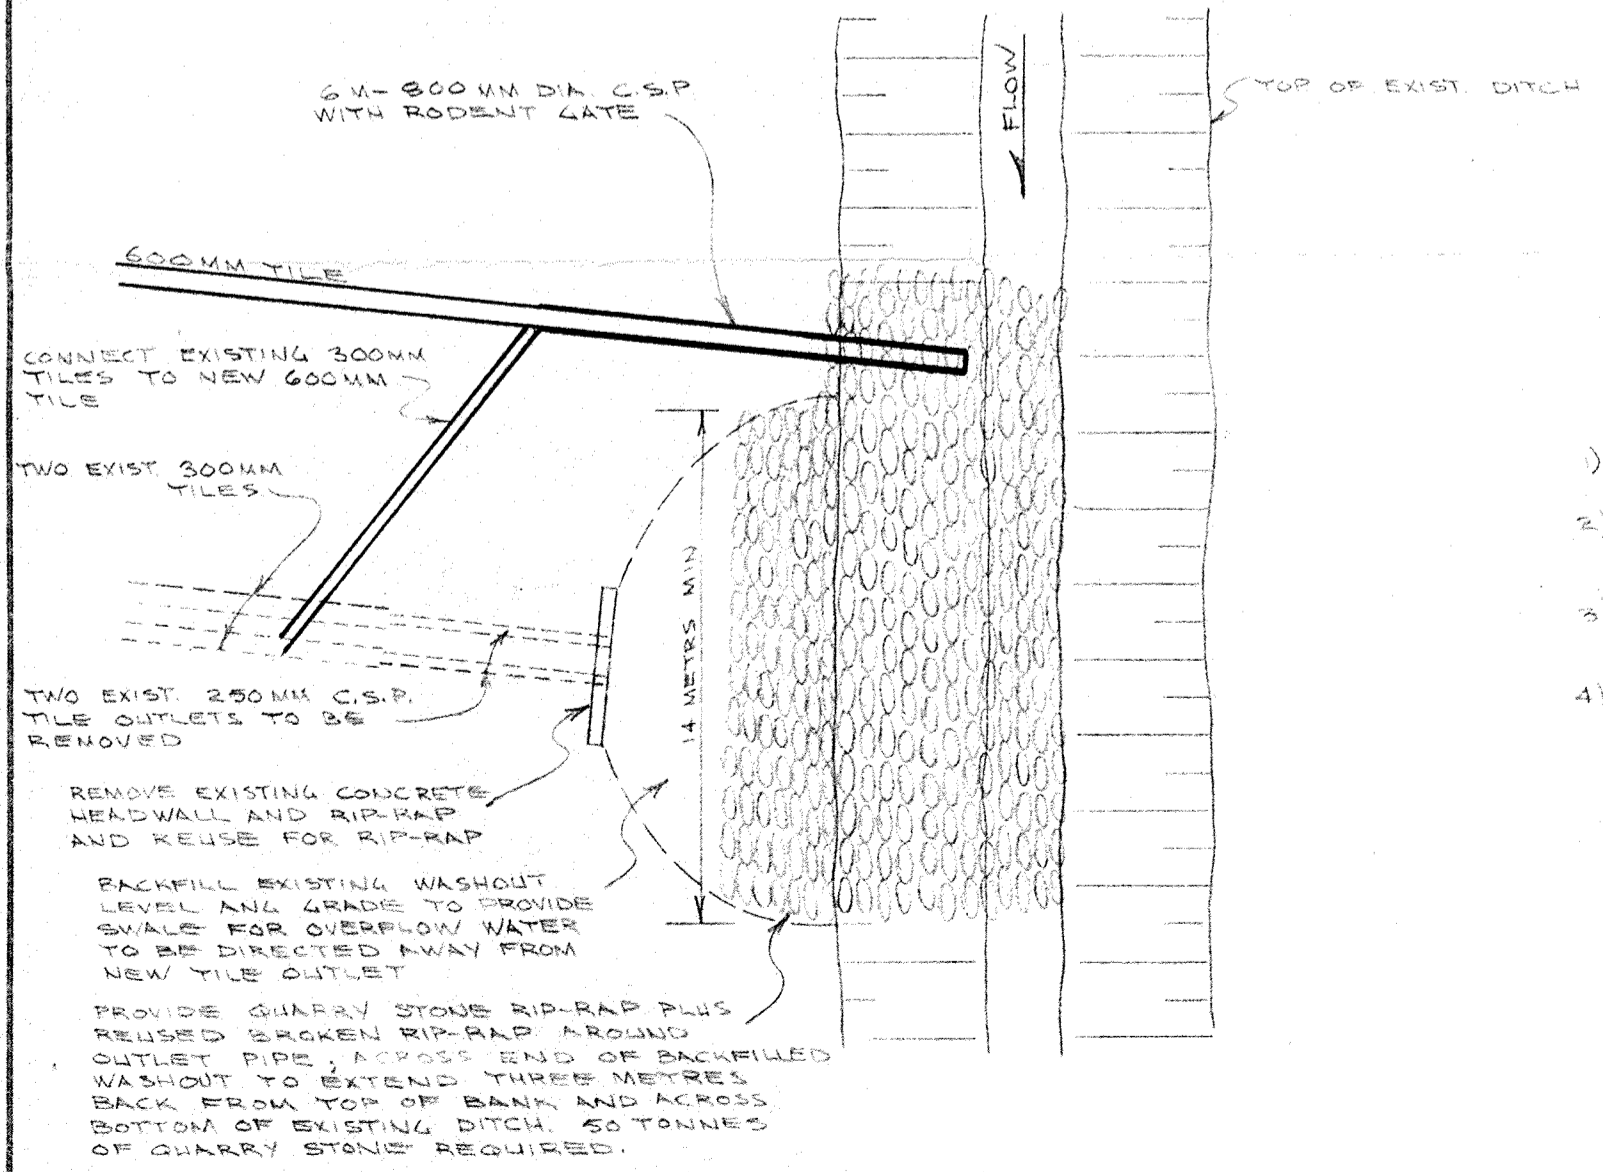 6 M- 800 MM DIA. C.S.P.
WITH RODENT GATE
FLOW
TOP OF EXIST. DITCH
600MM TILE
CONNECT EXISTING 300MM
TILES TO NEW 600MM
TILE
TWO EXIST. 300MM
TILES
14 METRS MIN
TWO EXIST. 250 MM C.S.P.
TILE OUTLETS TO BE
REMOVED
REMOVE EXISTING CONCRETE
HEADWALL AND RIP-RAP
AND REUSE FOR RIP-RAP
BACKFILL EXISTING WASHOUT
LEVEL ANG GRADE TO PROVIDE
SWALE FOR OVERFLOW WATER
TO BE DIRECTED AWAY FROM
NEW TILE OUTLET
PROVIDE QUARRY STONE RIP-RAP PLUS
REUSED BROKEN RIP-RAP AROUND
OUTLET PIPE, ACROSS END OF BACKFILLED
WASHOUT TO EXTEND THREE METRES
BACK FROM TOP OF BANK AND ACROSS
BOTTOM OF EXISTING DITCH. 50 TONNES
OF QUARRY STONE REQUIRED.
1)
2)
3
4)